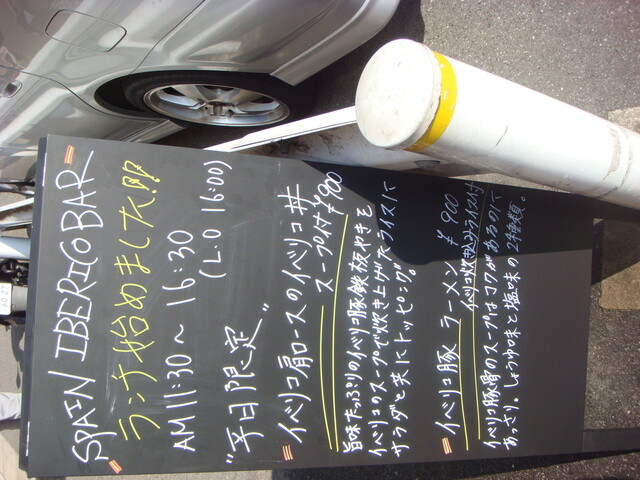 SPAIN IBERICO BAR
ランチ始めました!!
AM11:30〜16:30
(L.O 16:00)
"平日限定"
イベリコ肩ロースのイベリコ丼
スープ付 ¥900
旨味たっぷりのイベリコ豚鉄板やきを
イベリコのスープで炊き上げたライスに
サラダと共にトッピング。
イベリコ豚 ラーメン ¥900
イベリコ炊き込みライス付
イベリコ豚骨のスープはコクがあるのに
あっさり。しょうゆ味と塩味の2種類。